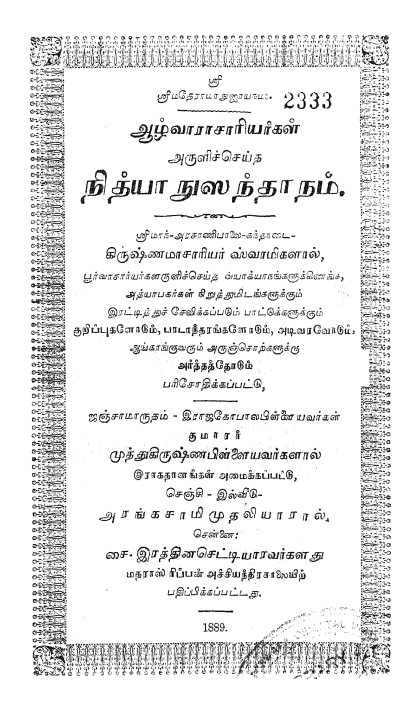 ஸ்ரீ
ஸ்ரீமதேராமாநுஜாயநம:.
2333
ஆழ்வாராசாரியர்கள்
அருளிச்செய்த
நித்யாநுஸந்தாநம்.
ஸ்ரீமாந்-அரசாணிபாலை-கந்தாடை-
கிருஷ்ணமாசாரியர் ஸ்வாமிகளால்,
பூர்வாசார்யர்களருளிச்செய்த வ்யாக்யாநங்களுக்கிணங்க,
அத்யாபகர்கள் நிறுத்துமிடங்களுக்கும்
இரட்டித்துச் சேவிக்கப்படும் பாட்டுக்களுக்கும்
குறிப்புகளோடும், பாடாந்தரங்களோடும், அடிவரவோடும்,
ஆங்காங்குவரும் அருஞ்சொற்களுக்கு
அர்த்தத்தோடும்
பரிசோதிக்கப்பட்டு,
ஜஞ்சாமாருதம் - இராஜகோபாலபிள்ளையவர்கள்
குமாரர்
முத்துகிருஷ்ணபிள்ளையவர்களால்
இராகதாளங்கள் அமைக்கப்பட்டு,
செஞ்சி - இல்லீடு-
அரங்கசாமிமுதலியாரால்,
சென்னை:
சை. இரத்தினசெட்டியாரவர்களது
மதராஸ் ரிப்பன் அச்சியந்திரசாலையிற்
பதிப்பிக்கப்பட்டது.
1889.